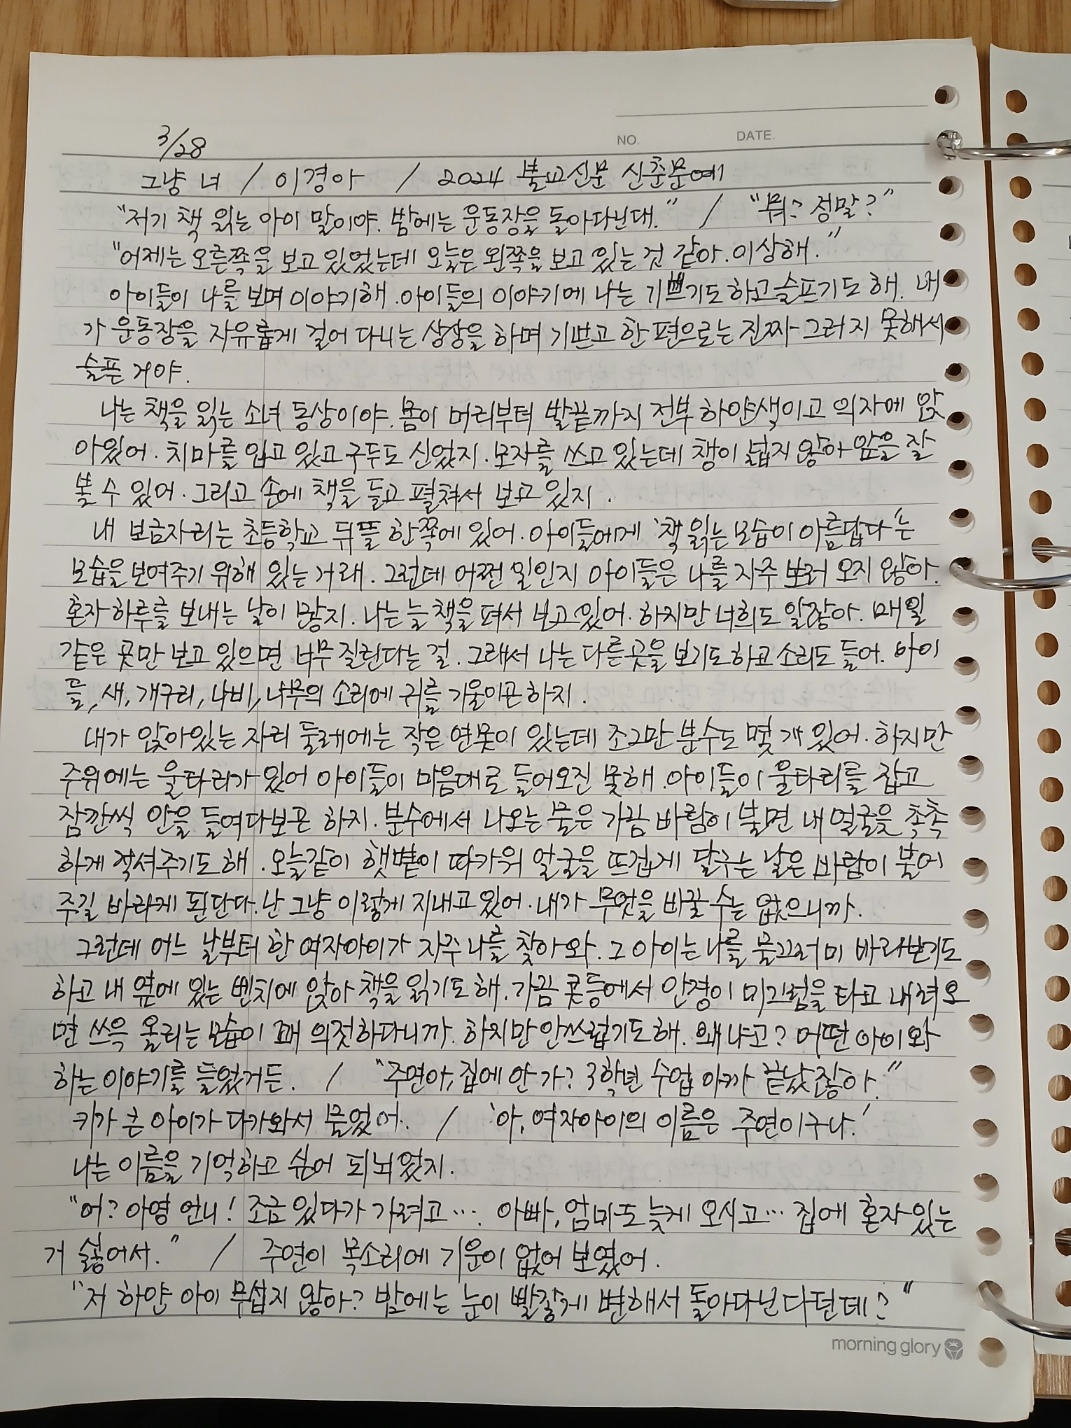 NO. DATE.
3/28
그냥 너 / 이경아 / 2024 불교신문 신춘문예
"저기 책 읽는 아이 말이야. 밤에는 운동장을 돌아다닌대." / "뭐? 정말?"
"어제는 오른쪽을 보고 있었는데 오늘은 왼쪽을 보고 있는 것 같아. 이상해."
아이들이 나를 보며 이야기해. 아이들의 이야기에 나는 기쁘기도 하고 슬프기도 해. 내
가 운동장을 자유롭게 걸어 다니는 상상을 하며 기쁘고 한 편으로는 진짜 그러지 못해서
슬픈 거야.
나는 책을 읽는 소녀 동상이야. 몸이 머리부터 발끝까지 전부 하얀색이고 의자에 앉
아있어. 치마를 입고 있고 구두도 신었지. 모자를 쓰고 있는데 챙이 넓지 않아 앞을 잘
볼 수 있어. 그리고 손에 책을 들고 펼쳐서 보고 있지.
내 보금자리는 초등학교 뒤뜰 한쪽에 있어. 아이들에게 '책 읽는 모습이 아름답다'는
모습을 보여주기 위해 있는 거래. 그런데 어쩐 일인지 아이들은 나를 자주 보러 오지 않아.
혼자 하루를 보내는 날이 많지. 나는 늘 책을 펴서 보고 있어. 하지만 너희도 알잖아. 매일
같은 곳만 보고 있으면 너무 질린다는 걸. 그래서 나는 다른 곳을 보기도 하고 소리도 들어. 아이
들, 새, 개구리, 나비, 나무의 소리에 귀를 기울이곤 하지.
내가 앉아있는 자리 둘레에는 작은 연못이 있는데 조그만 분수도 몇 개 있어. 하지만
주위에는 울타리가 있어 아이들이 마음대로 들어오진 못해. 아이들이 울타리를 잡고
잠깐씩 안을 들여다보곤 하지. 분수에서 나오는 물은 가끔 바람이 불면 내 얼굴을 촉촉
하게 적셔주기도 해. 오늘같이 햇볕이 따가워 얼굴을 뜨겁게 달구는 날은 바람이 불어
주길 바라게 된단다. 난 그냥 이렇게 지내고 있어. 내가 무엇을 바꿀 수는 없으니까.
그런데 어느 날부터 한 여자아이가 자주 나를 찾아와. 그 아이는 나를 물끄러미 바라보기도
하고 내 옆에 있는 벤치에 앉아 책을 읽기도 해. 가끔 콧등에서 안경이 미끄럼을 타고 내려오
면 쓰윽 올리는 모습이 꽤 의젓하다니까. 하지만 안쓰럽기도 해. 왜냐고? 어떤 아이와
하는 이야기를 들었거든. / "주연아, 집에 안 가? 3학년 수업 아까 끝났잖아."
키가 큰 아이가 다가와서 물었어. / '아, 여자아이의 이름은 주연이구나.'
나는 이름을 기억하고 싶어 되뇌었지.
"어? 아영 언니! 조금 있다가 가려고…. 아빠, 엄마도 늦게 오시고… 집에 혼자 있는
거 싫어서." / 주연이 목소리에 기운이 없어 보였어.
"저 하얀 아이 무섭지 않아? 밤에는 눈이 빨갛게 변해서 돌아다닌다던데?"
morning glory